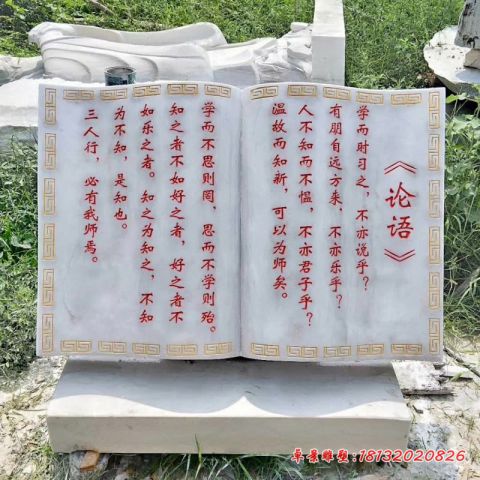 《论语》
学而时习之，不亦说乎？
有朋自远方来，不亦乐乎？
人不知而不愠，不亦君子乎？
温故而知新，可以为师矣。
学而不思则罔，思而不学则殆。
知之者不如好之者，好之者不
如乐之者。知之为知之，不知
为不知，是知也。
三人行，必有我师焉。
卓景雕塑:18132020826